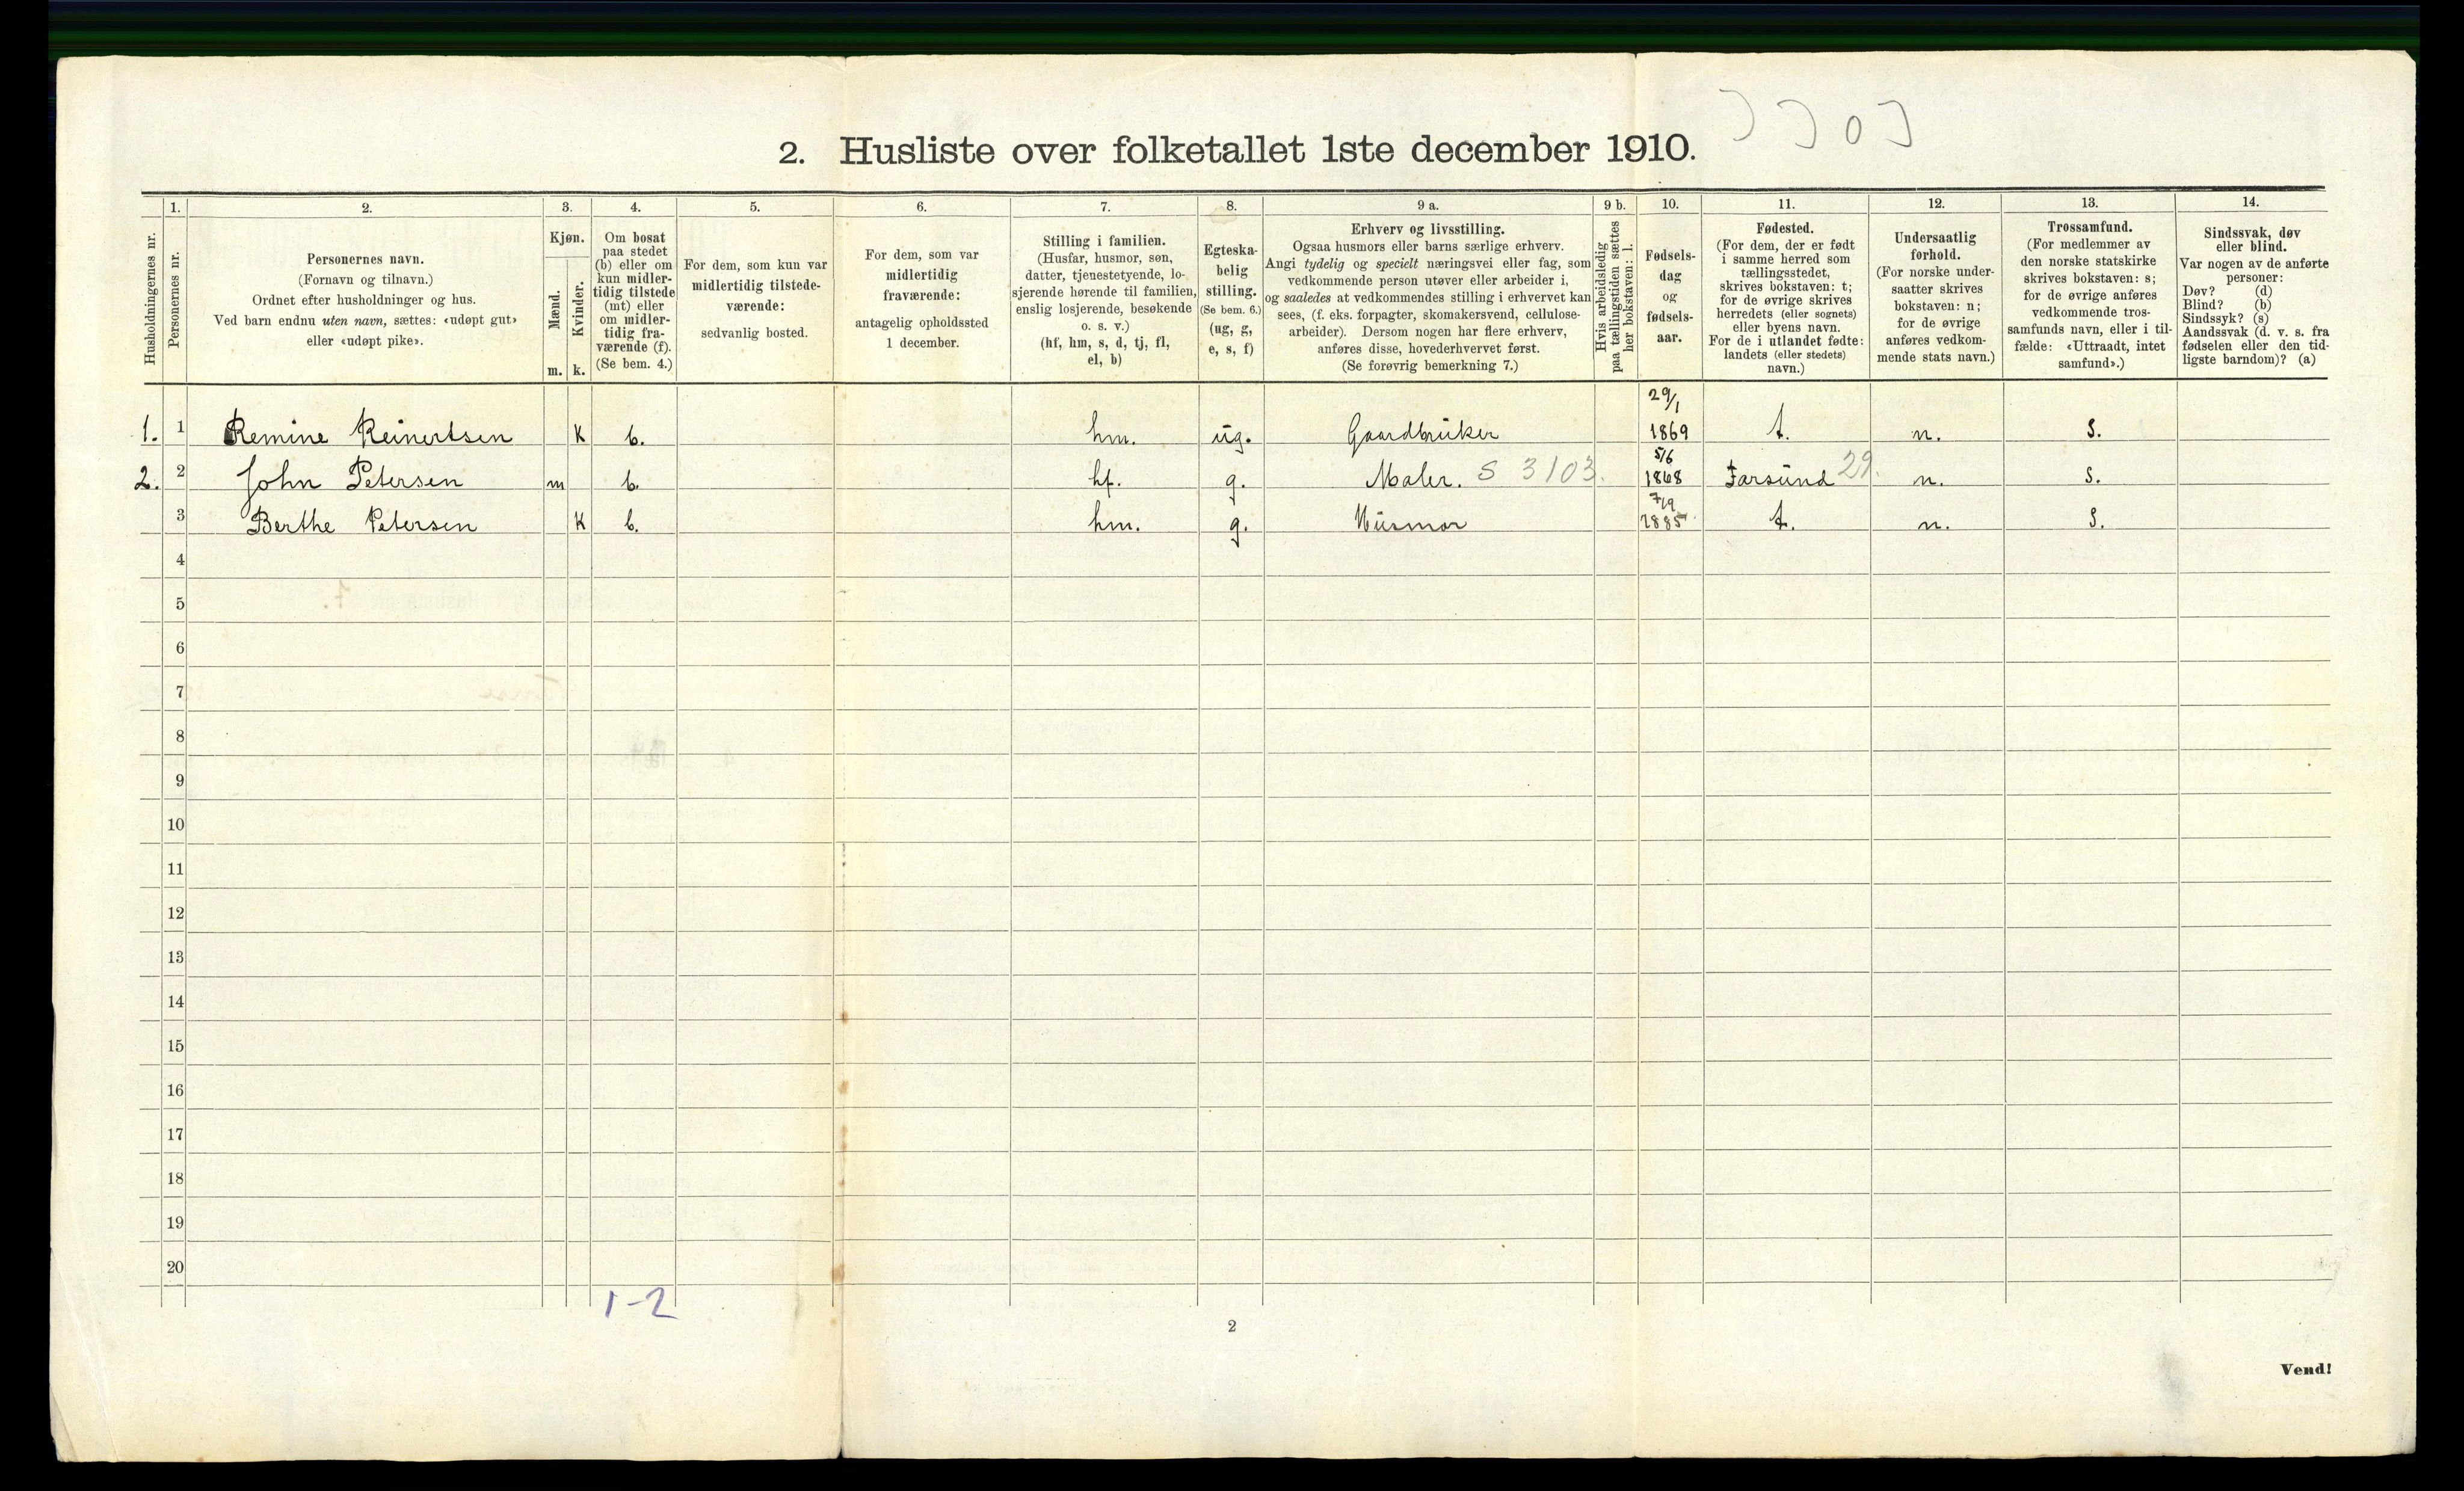 2. Husliste over folketallet 1ste december 1910.
1. 2. 3. 4. 5. 6. 7. 8. 9 a. 9 b. 10. 11. 12. 13. 14.
Husholdningernes nr.
Personernes nr.
Personernes navn.
(Fornavn og tilnavn.)
Ordnet efter husholdninger og hus.
Ved barn endnu uten navn, sættes: «udøpt gut»
eller «udøpt pike».
Kjøn.
Mænd.
Kvinder.
m. k.
Om bosat
paa stedet
(b) eller om
kun midler-
tidig tilstede
(mt) eller
om midler-
tidig fra-
værende (f).
(Se bem. 4.)
For dem, som kun var
midlertidig tilstede-
værende:
sedvanlig bosted.
For dem, som var
midlertidig
fraværende:
antagelig opholdssted
1 december.
Stilling i familien.
(Husfar, husmor, søn,
datter, tjenestetyende, lo-
sjerende hørende til familien,
enslig losjerende, besøkende
o. s. v.)
(hf, hm, s, d, tj, fl,
el, b)
Egteska-
belig
stilling.
(Se bem. 6.)
(ug, g,
e, s, f)
Erhverv og livsstilling.
Ogsaa husmors eller barns særlige erhverv.
Angi tydelig og specielt næringsvei eller fag, som
vedkommende person utøver eller arbeider i,
og saaledes at vedkommendes stilling i erhvervet kan
sees, (f. eks. forpagter, skomakersvend, cellulose-
arbeider). Dersom nogen har flere erhverv,
anføres disse, hovederhvervet først.
(Se forøvrig bemerkning 7.)
Hvis arbeidsledig
paa tællingstiden sættes
her bokstaven: l.
Fødsels-
dag
og
fødsels-
aar.
Fødested.
(For dem, der er født
i samme herred som
tællingsstedet,
skrives bokstaven: t;
for de øvrige skrives
herredets (eller sognets)
eller byens navn.
For de i utlandet fødte:
landets (eller stedets)
navn.)
Undersaatlig
forhold.
(For norske under-
saatter skrives
bokstaven: n;
for de øvrige
anføres vedkom-
mende stats navn.)
Trossamfund.
(For medlemmer av
den norske statskirke
skrives bokstaven: s;
for de øvrige anføres
vedkommende tros-
samfunds navn, eller i til-
fælde: «Uttraadt, intet
samfund».)
Sindssvak, døv
eller blind.
Var nogen av de anførte
personer:
Døv? (d)
Blind? (b)
Sindssyk? (s)
Aandssvak (d. v. s. fra
fødselen eller den tid-
ligste barndom)? (a)
1. 1 Remine Reinertsen K b. hm. ug. Gaardbruker 29/1 1869 t. n. s.
2. 2 John Petersen m b. hf. g. Maler. S 3103. 5/6 1868 Farsund 29. n. s.
3 Berthe Petersen K b. hm. g. Husmor 7/9 1885 t. n. s.
4
5
6
7
8
9
10
11
12
13
14
15
16
17
18
19
20
1-2
2
Vend!